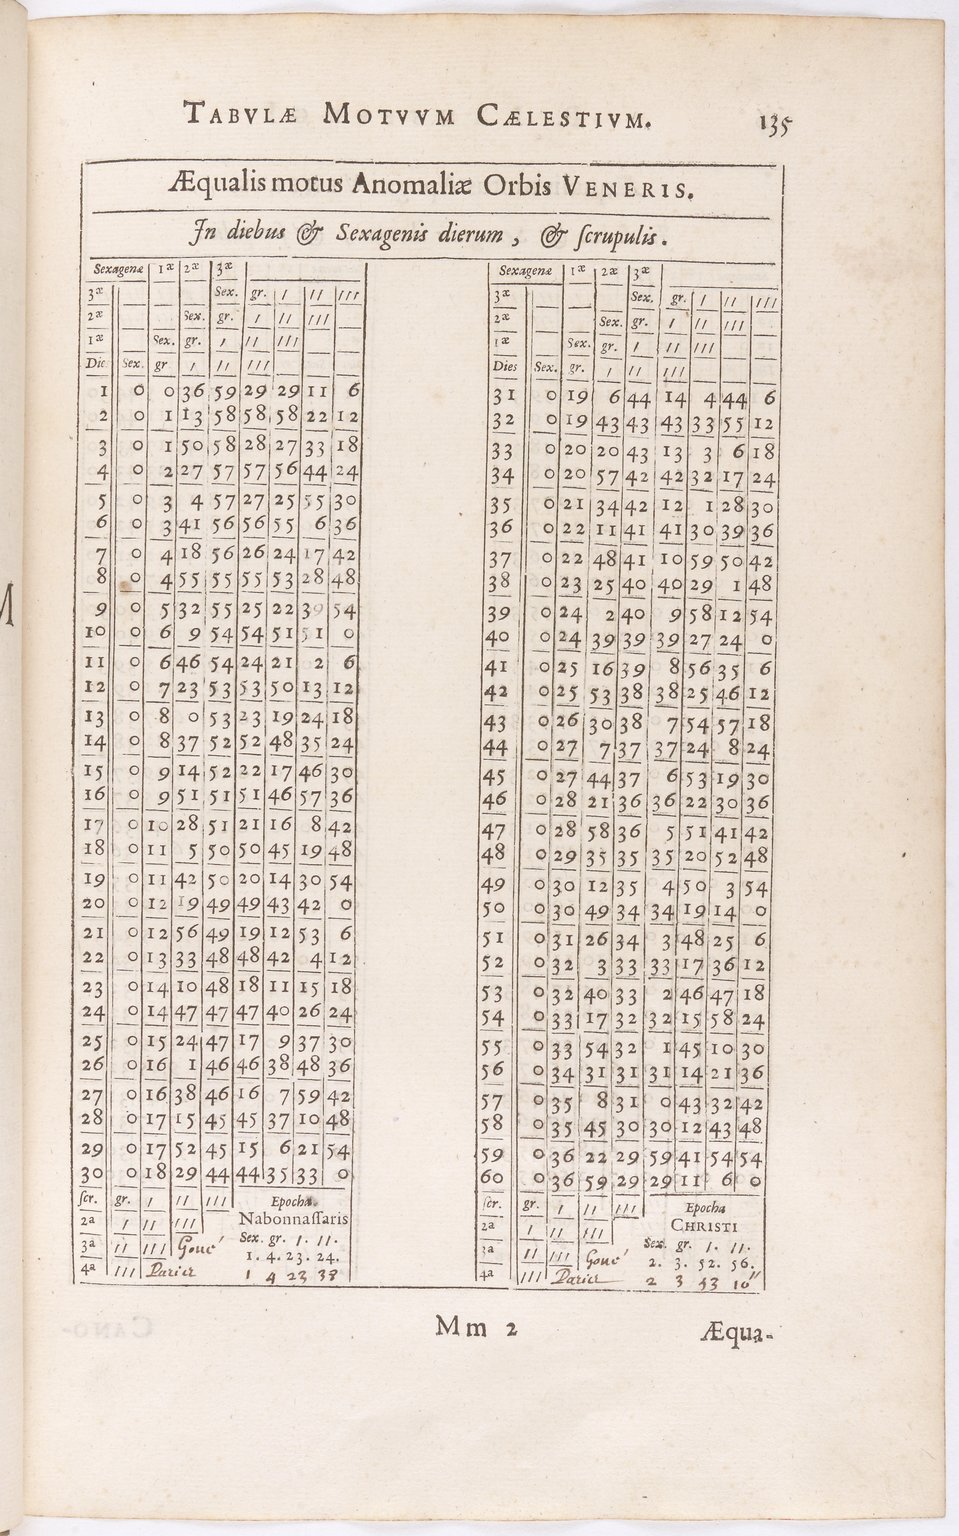 TABVLÆ MOTVVM CÆLESTIVM. 135
Æqualis motus Anomaliæ Orbis VENERIS.
In diebus & Sexagenis dierum, & ſcrupulis.
Sexagenæ 1æ 2æ 3æ
3æ Sex. gr. / // ///
2æ Sex. gr. / // ///
1æ Sex. gr. / // ///
Die Sex. gr / // ///
1 0 0 36 59 29 29 11 6
2 0 1 13 58 58 58 22 12
3 0 1 50 58 28 27 33 18
4 0 2 27 57 57 56 44 24
5 0 3 4 57 27 25 55 30
6 0 3 41 56 56 55 6 36
7 0 4 18 56 26 24 17 42
8 0 4 55 55 55 53 28 48
9 0 5 32 55 25 22 39 54
10 0 6 9 54 54 51 51 0
11 0 6 46 54 24 21 2 6
12 0 7 23 53 53 50 13 12
13 0 8 0 53 23 19 24 18
14 0 8 37 52 52 48 35 24
15 0 9 14 52 22 17 46 30
16 0 9 51 51 51 46 57 36
17 0 10 28 51 21 16 8 42
18 0 11 5 50 50 45 19 48
19 0 11 42 50 20 14 30 54
20 0 12 19 49 49 43 42 0
21 0 12 56 49 19 12 53 6
22 0 13 33 48 48 42 4 12
23 0 14 10 48 18 11 15 18
24 0 14 47 47 47 40 26 24
25 0 15 24 47 17 9 37 30
26 0 16 1 46 46 38 48 36
27 0 16 38 46 16 7 59 42
28 0 17 15 45 45 37 10 48
29 0 17 52 45 15 6 21 54
30 0 18 29 44 44 35 33 0
ſcr. gr. / // /// Epocha.
2a / // /// Nabonnaſſaris
3a // /// Gouc' Sex. gr. /. //.
1. 4. 23. 24.
4a /// Parier 1 4 23 38
Sexagenæ 1æ 2æ 3æ
3æ Sex. gr. / // ///
2æ Sex. gr. / // ///
1æ Sex. gr. / // ///
Dies Sex. gr. / // ///
31 0 19 6 44 14 4 44 6
32 0 19 43 43 43 33 55 12
33 0 20 20 43 13 3 6 18
34 0 20 57 42 42 32 17 24
35 0 21 34 42 12 1 28 30
36 0 22 11 41 41 30 39 36
37 0 22 48 41 10 59 50 42
38 0 23 25 40 40 29 1 48
39 0 24 2 40 9 58 12 54
40 0 24 39 39 39 27 24 0
41 0 25 16 39 8 56 35 6
42 0 25 53 38 38 25 46 12
43 0 26 30 38 7 54 57 18
44 0 27 7 37 37 24 8 24
45 0 27 44 37 6 53 19 30
46 0 28 21 36 36 22 30 36
47 0 28 58 36 5 51 41 42
48 0 29 35 35 35 20 52 48
49 0 30 12 35 4 50 3 54
50 0 30 49 34 34 19 14 0
51 0 31 26 34 3 48 25 6
52 0 32 3 33 33 17 36 12
53 0 32 40 33 2 46 47 18
54 0 33 17 32 32 15 58 24
55 0 33 54 32 1 45 10 30
56 0 34 31 31 31 14 21 36
57 0 35 8 31 0 43 32 42
58 0 35 45 30 30 12 43 48
59 0 36 22 29 59 41 54 54
60 0 36 59 29 29 11 6 0
ſcr. gr. / // /// Epocha
2a / // /// CHRISTI
3a // /// Gouc' Sex. gr. /. //.
2. 3. 52. 56.
4a /// Parier 2 3 53 10"
Mm 2 Æqua-